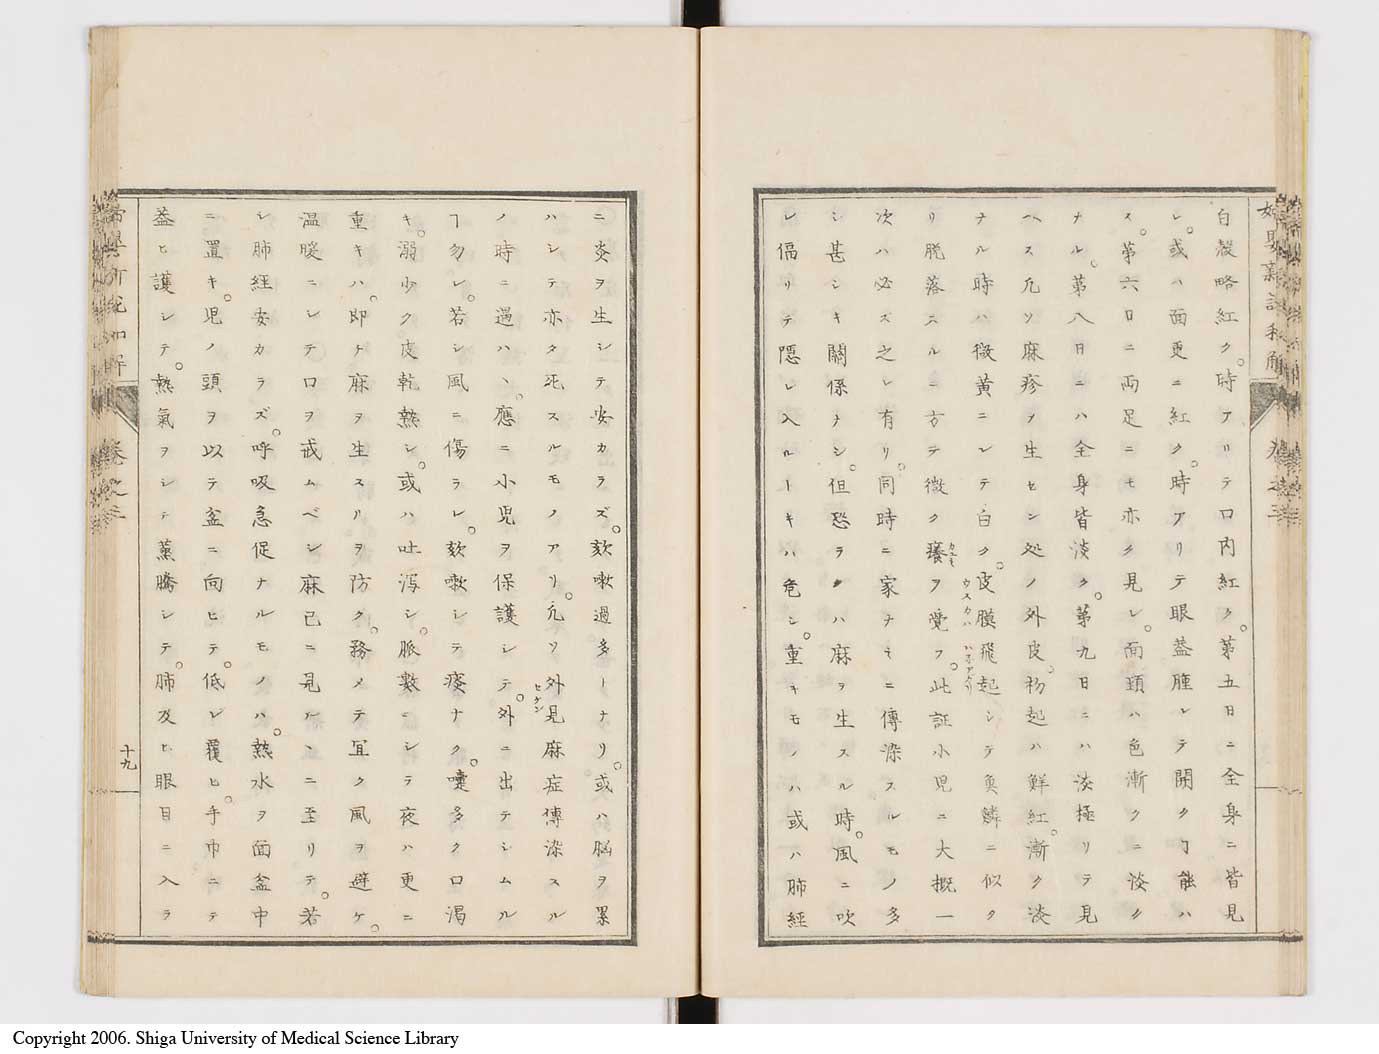 白殼略紅ク。時アリテ口内紅ク。第五日ニ全身ニ皆見
レ。或ハ面更ニ紅ク。時アリテ眼蓋腫レテ開クヿ能ハ
ス。第六日ニ両足ニモ亦タ見レ。面頚ハ色漸クニ淡ク
ナル。第八日ニハ全身皆淡ク。第九日ニハ淡極リテ見
ヘス凢ソ麻疹ノ生セシ処ノ外皮。杨起ハ鮮紅。漸ク淡
ナル時ハ微黄ニシテ白ク。皮膜飛起シテ魚鱗ニ似タ
ウスカハ
リ脱落スルニ方テ微ク癢ヲ覺フ。此証小児ニ大概一
カユモ
次ハ必ズ之レ有リ。同時ニ家ナミニ傳染スルモノ多
シ甚シキ關係ナシ。但恐ラクハ麻ヲ生スル時。風ニ吹
レ偪リテ隠レ入ルーキハ危シ。重キモノハ或ハ肺經
ニ炎ヲ生シテ安カラズ。欬嗽過多ーナリ。或ハ脳ヲ累
ハシテ亦タ死スルモノアリ。凢ソ外見麻症傳染スル
ノ時ニ過ハヽ應ニ小児ヲ保護シテ。外ニ出テシムル
ヒケン
ヿ勿レ。若シ風ニ傷ラレ。欬嗽シテ痰ナク。嚏多ク口渇
キ。溺少ク皮乾熱シ。或ハ吐瀉シ。脈數ニシテ夜ハ更ニ
重キハ。即チ麻ヲ生スリヲ防ク。務メテ宜ク風ヲ避ケ。
温暖ニシテ口ヲ戒ムベシ麻已ニ見ルヽニ至リテ。若
シ肺經安カラズ。呼吸急促ナルモノハ。熱水ヲ面盆中
ニ置キ。児ノ頭ヲ以テ盆ニ向ヒテ。低レ覆ヒ。手巾ニテ
蓋ヒ護シテ。熱氣ヲシテ薫騰シテ。肺及ヒ眼目ニ入ラ
十九